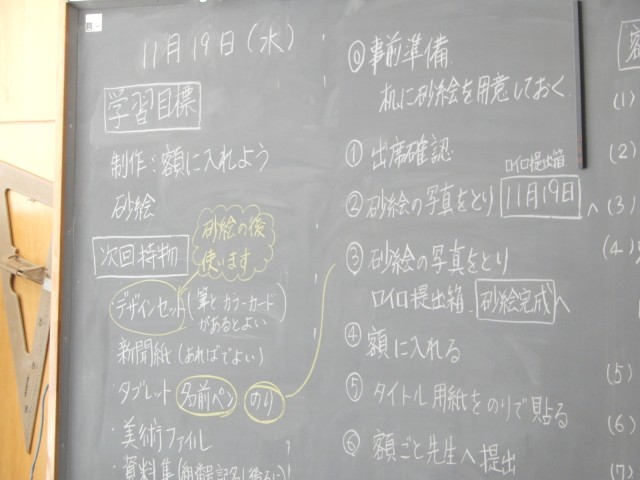 11月19日(水)
学習目標
制作:額に入れよう
砂絵
砂絵の後
使います
次回持物
・デザインセット(筆とカラーカード
があるとよい)
・新聞紙(あればでよい)
・タブレット 名前ペン のり
・美術ファイル
・資料集
⓪事前準備
机に砂絵を用意しておく
①出席確認
ロイロ提出箱
②砂絵の写真をとり 11月19日 へ
③砂絵の写真をとり
ロイロ提出箱 砂絵完成 へ
④額に入れる
⑤タイトル用紙をのりで貼る
⑥額ごと先生へ提出
(1)
(2)
(3)
(4)
(5)
(6)
(7)